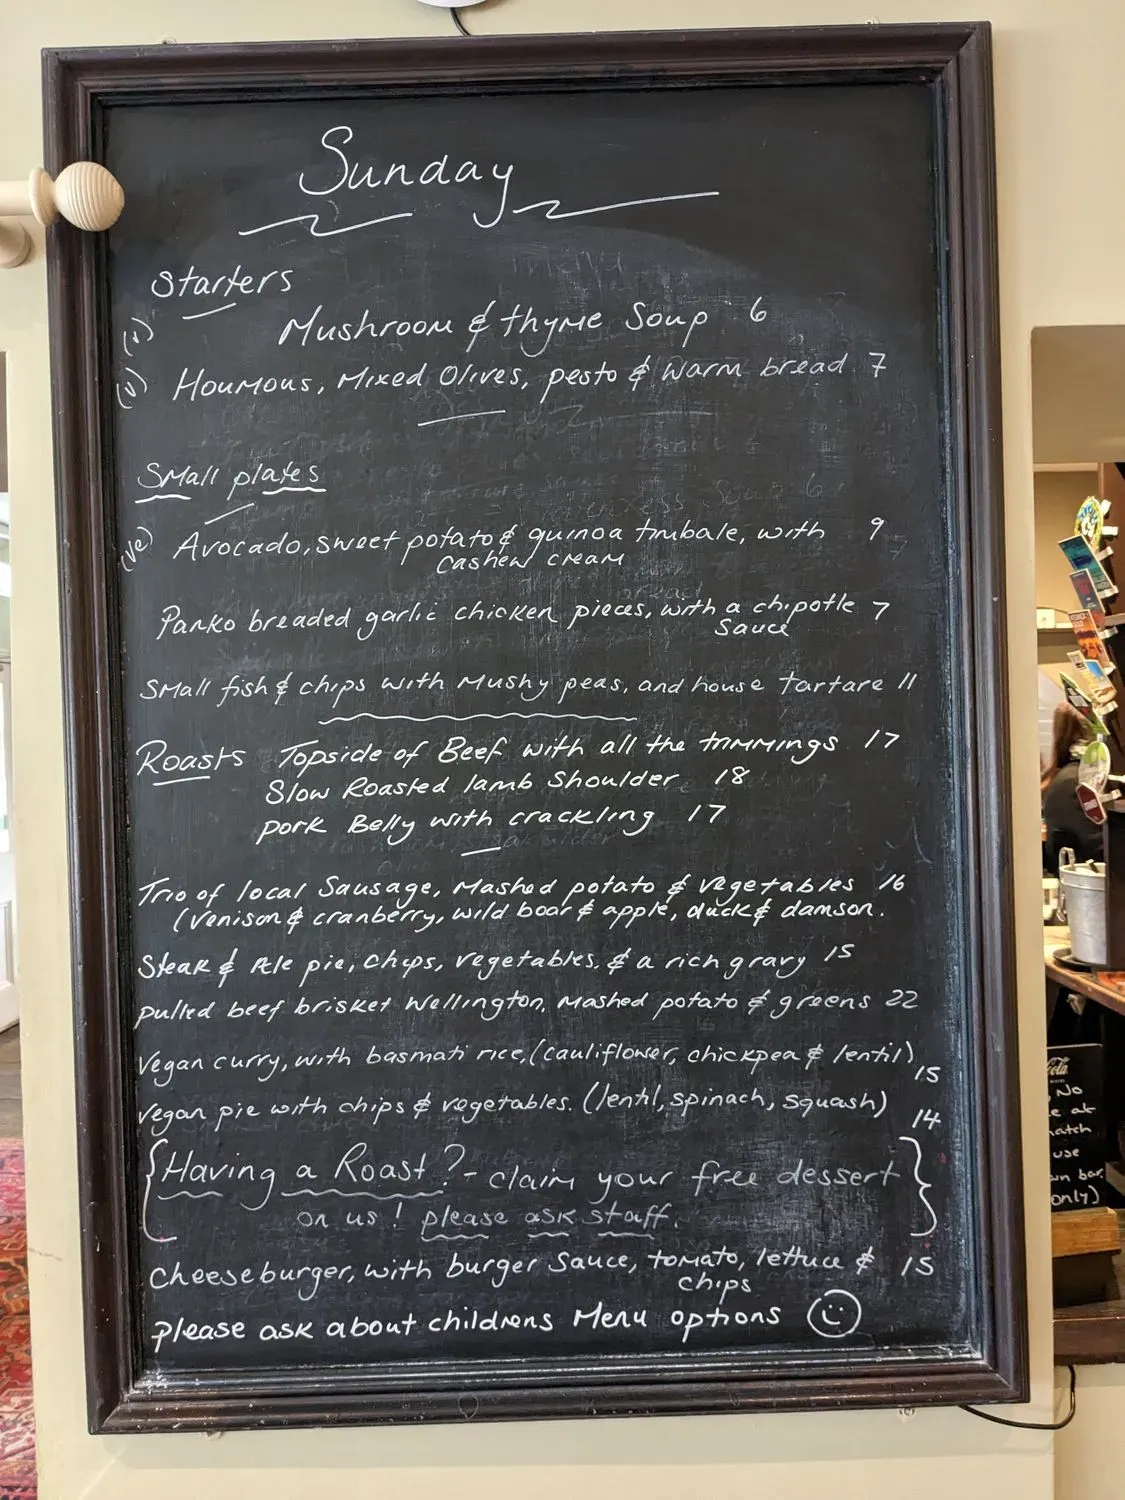 Sunday
Starters
(v) Mushroom & thyme Soup 6
(v) Houmous, Mixed Olives, pesto & Warm bread. 7
Small plates
(ve) Avocado, sweet potato & quinoa timbale, with 9
cashew cream
Panko breaded garlic chicken pieces, with a chipotle 7
Sauce
Small fish & chips with Mushy peas, and house tartare 11
Roasts Topside of Beef with all the trimmings. 17
Slow Roasted lamb Shoulder. 18
pork Belly with crackling 17
Trio of local Sausage, Mashed potato & vegetables 16
(venison & cranberry, wild boar & apple, duck & damson.
Steak & Ale pie, chips, vegetables. & a rich gravy 15
pulled beef brisket Wellington, Mashed potato & greens 22
Vegan curry, with basmati rice, (cauliflower, chickpea & lentil)
15
Vegan pie with chips & vegetables. (lentil, spinach, squash)
14
{Having a Roast? - claim your free dessert
on us! please ask staff.}
Cheeseburger, with burger Sauce, tomato, lettuce & 15
chips
please ask about childrens Menu options
Cola
No
at
use
bar.
only)